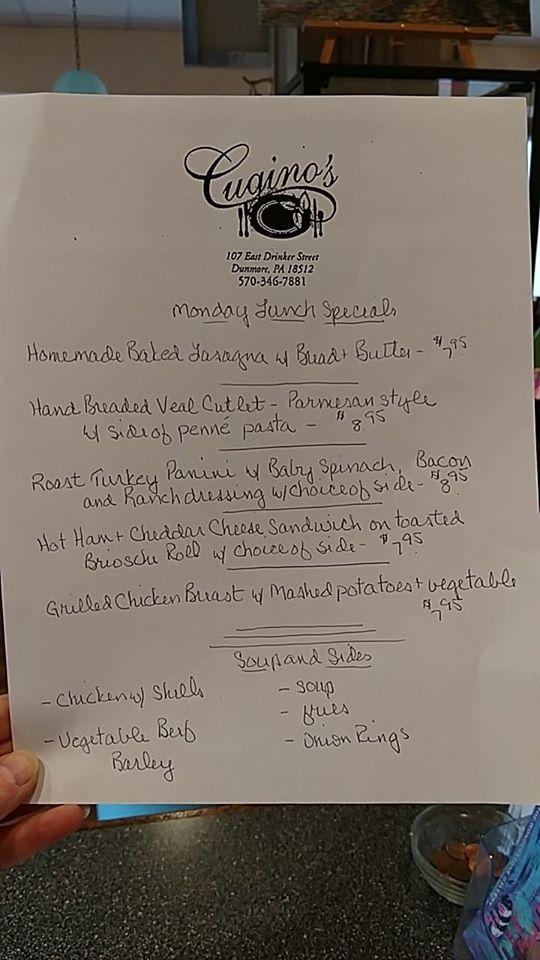 Cugino's
107 East Drinker Street
Dunmore, PA 18512
570-346-7881
Monday Lunch Specials
Homemade Baked Lasagna w/ Bread + Butter - $7.95
Hand Breaded Veal Cutlet - Parmesan style
w/ side of penné pasta - $8.95
Roast Turkey Panini w/ Baby Spinach, Bacon
and Ranch dressing w/ choice of side - $8.95
Hot Ham + Cheddar Cheese Sandwich on toasted
Brioschi Roll w/ choice of side - $7.95
Grilled Chicken Breast w/ Mashed potatoes + vegetable
$7.95
Soup and Sides
- Chicken w/ Shells
- Vegetable Beef
Barley
- Soup
- fries
- Onion Rings